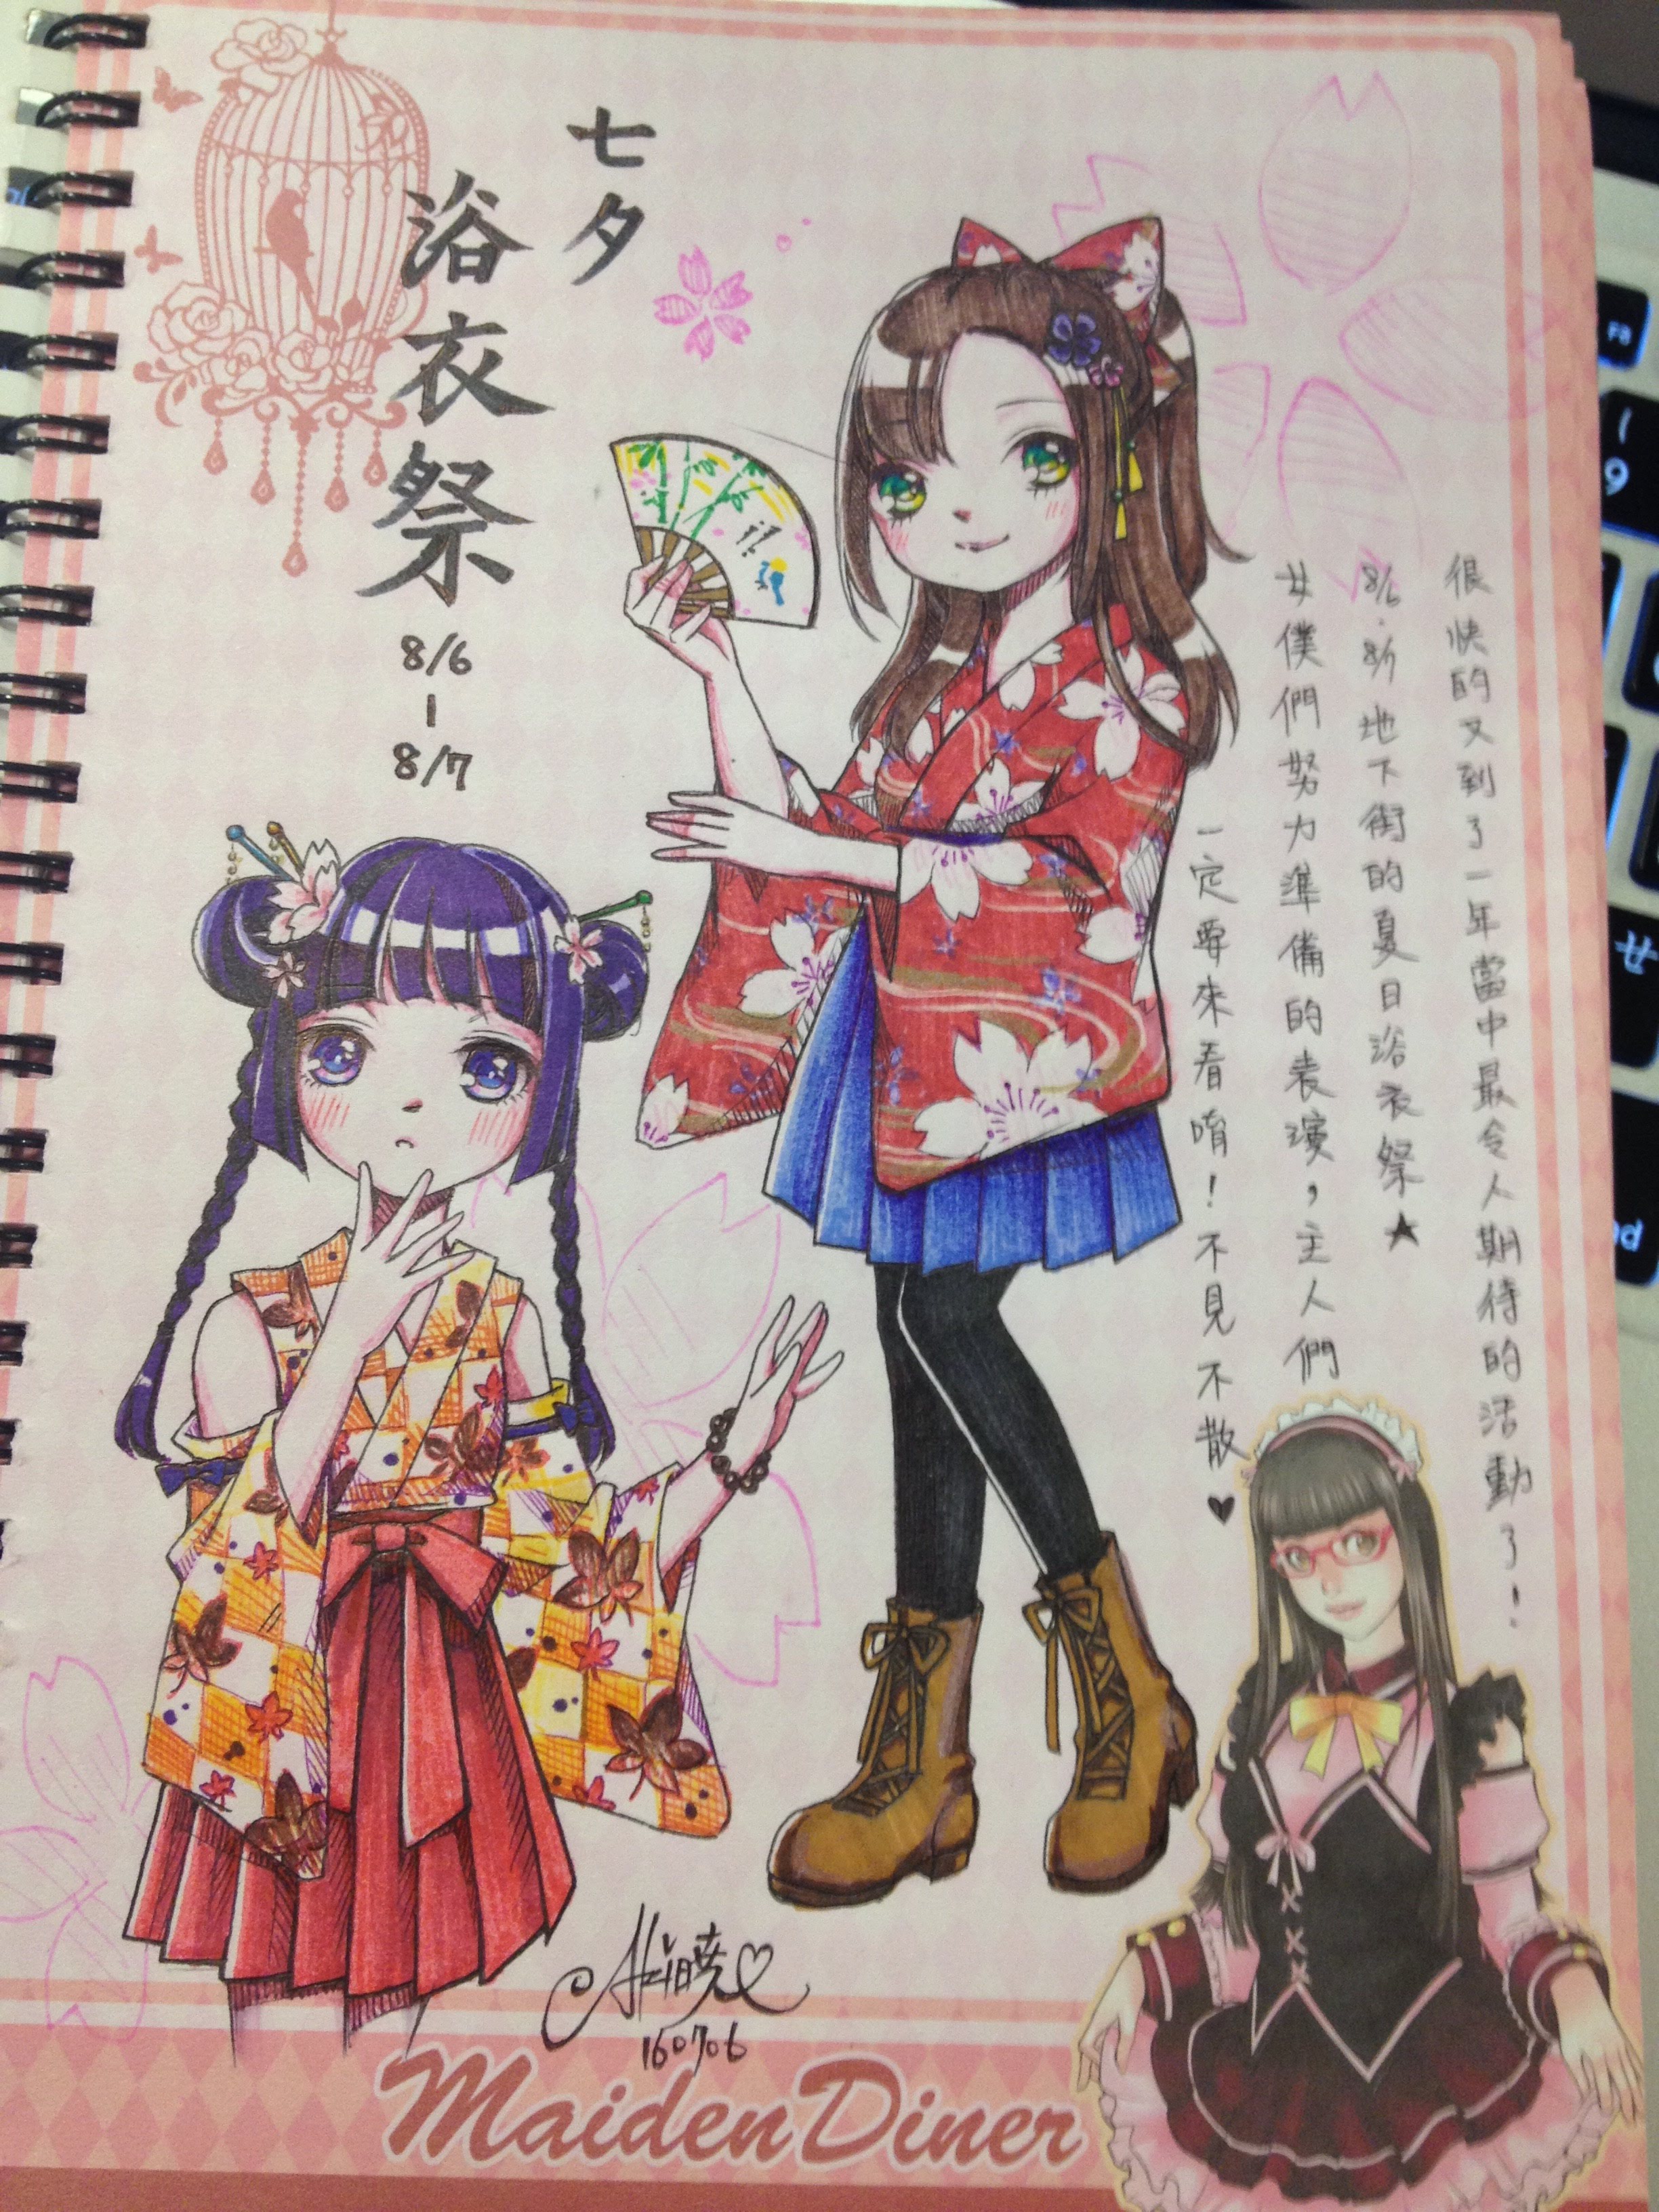 七夕
浴衣祭
8/6
-
8/7
很快的又到了一年當中最令人期待的活動了!
8/6.8/7地下街的夏日浴衣祭★
女僕們努力準備的表演,主人們
一定要來看唷!不見不散♥
160706
Maiden Diner